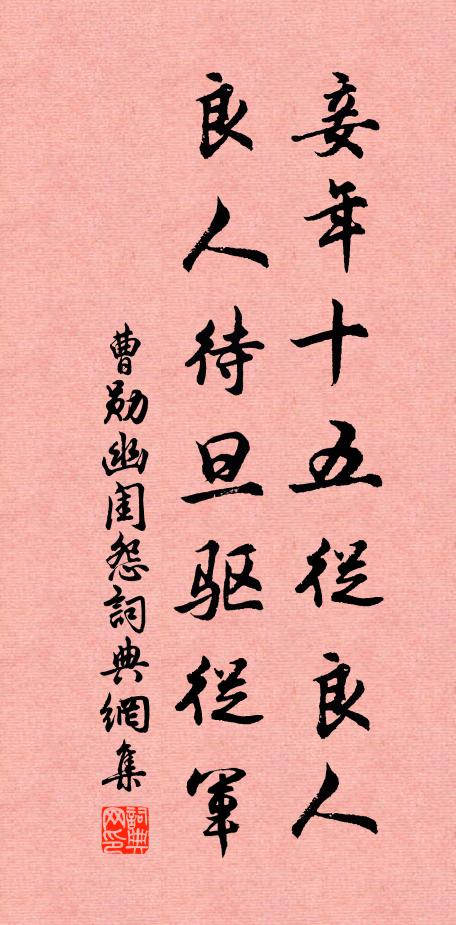 妾年十五從良人
良人待旦驱從軍
曹勛幽閨怨詞典網集
詞典
网印